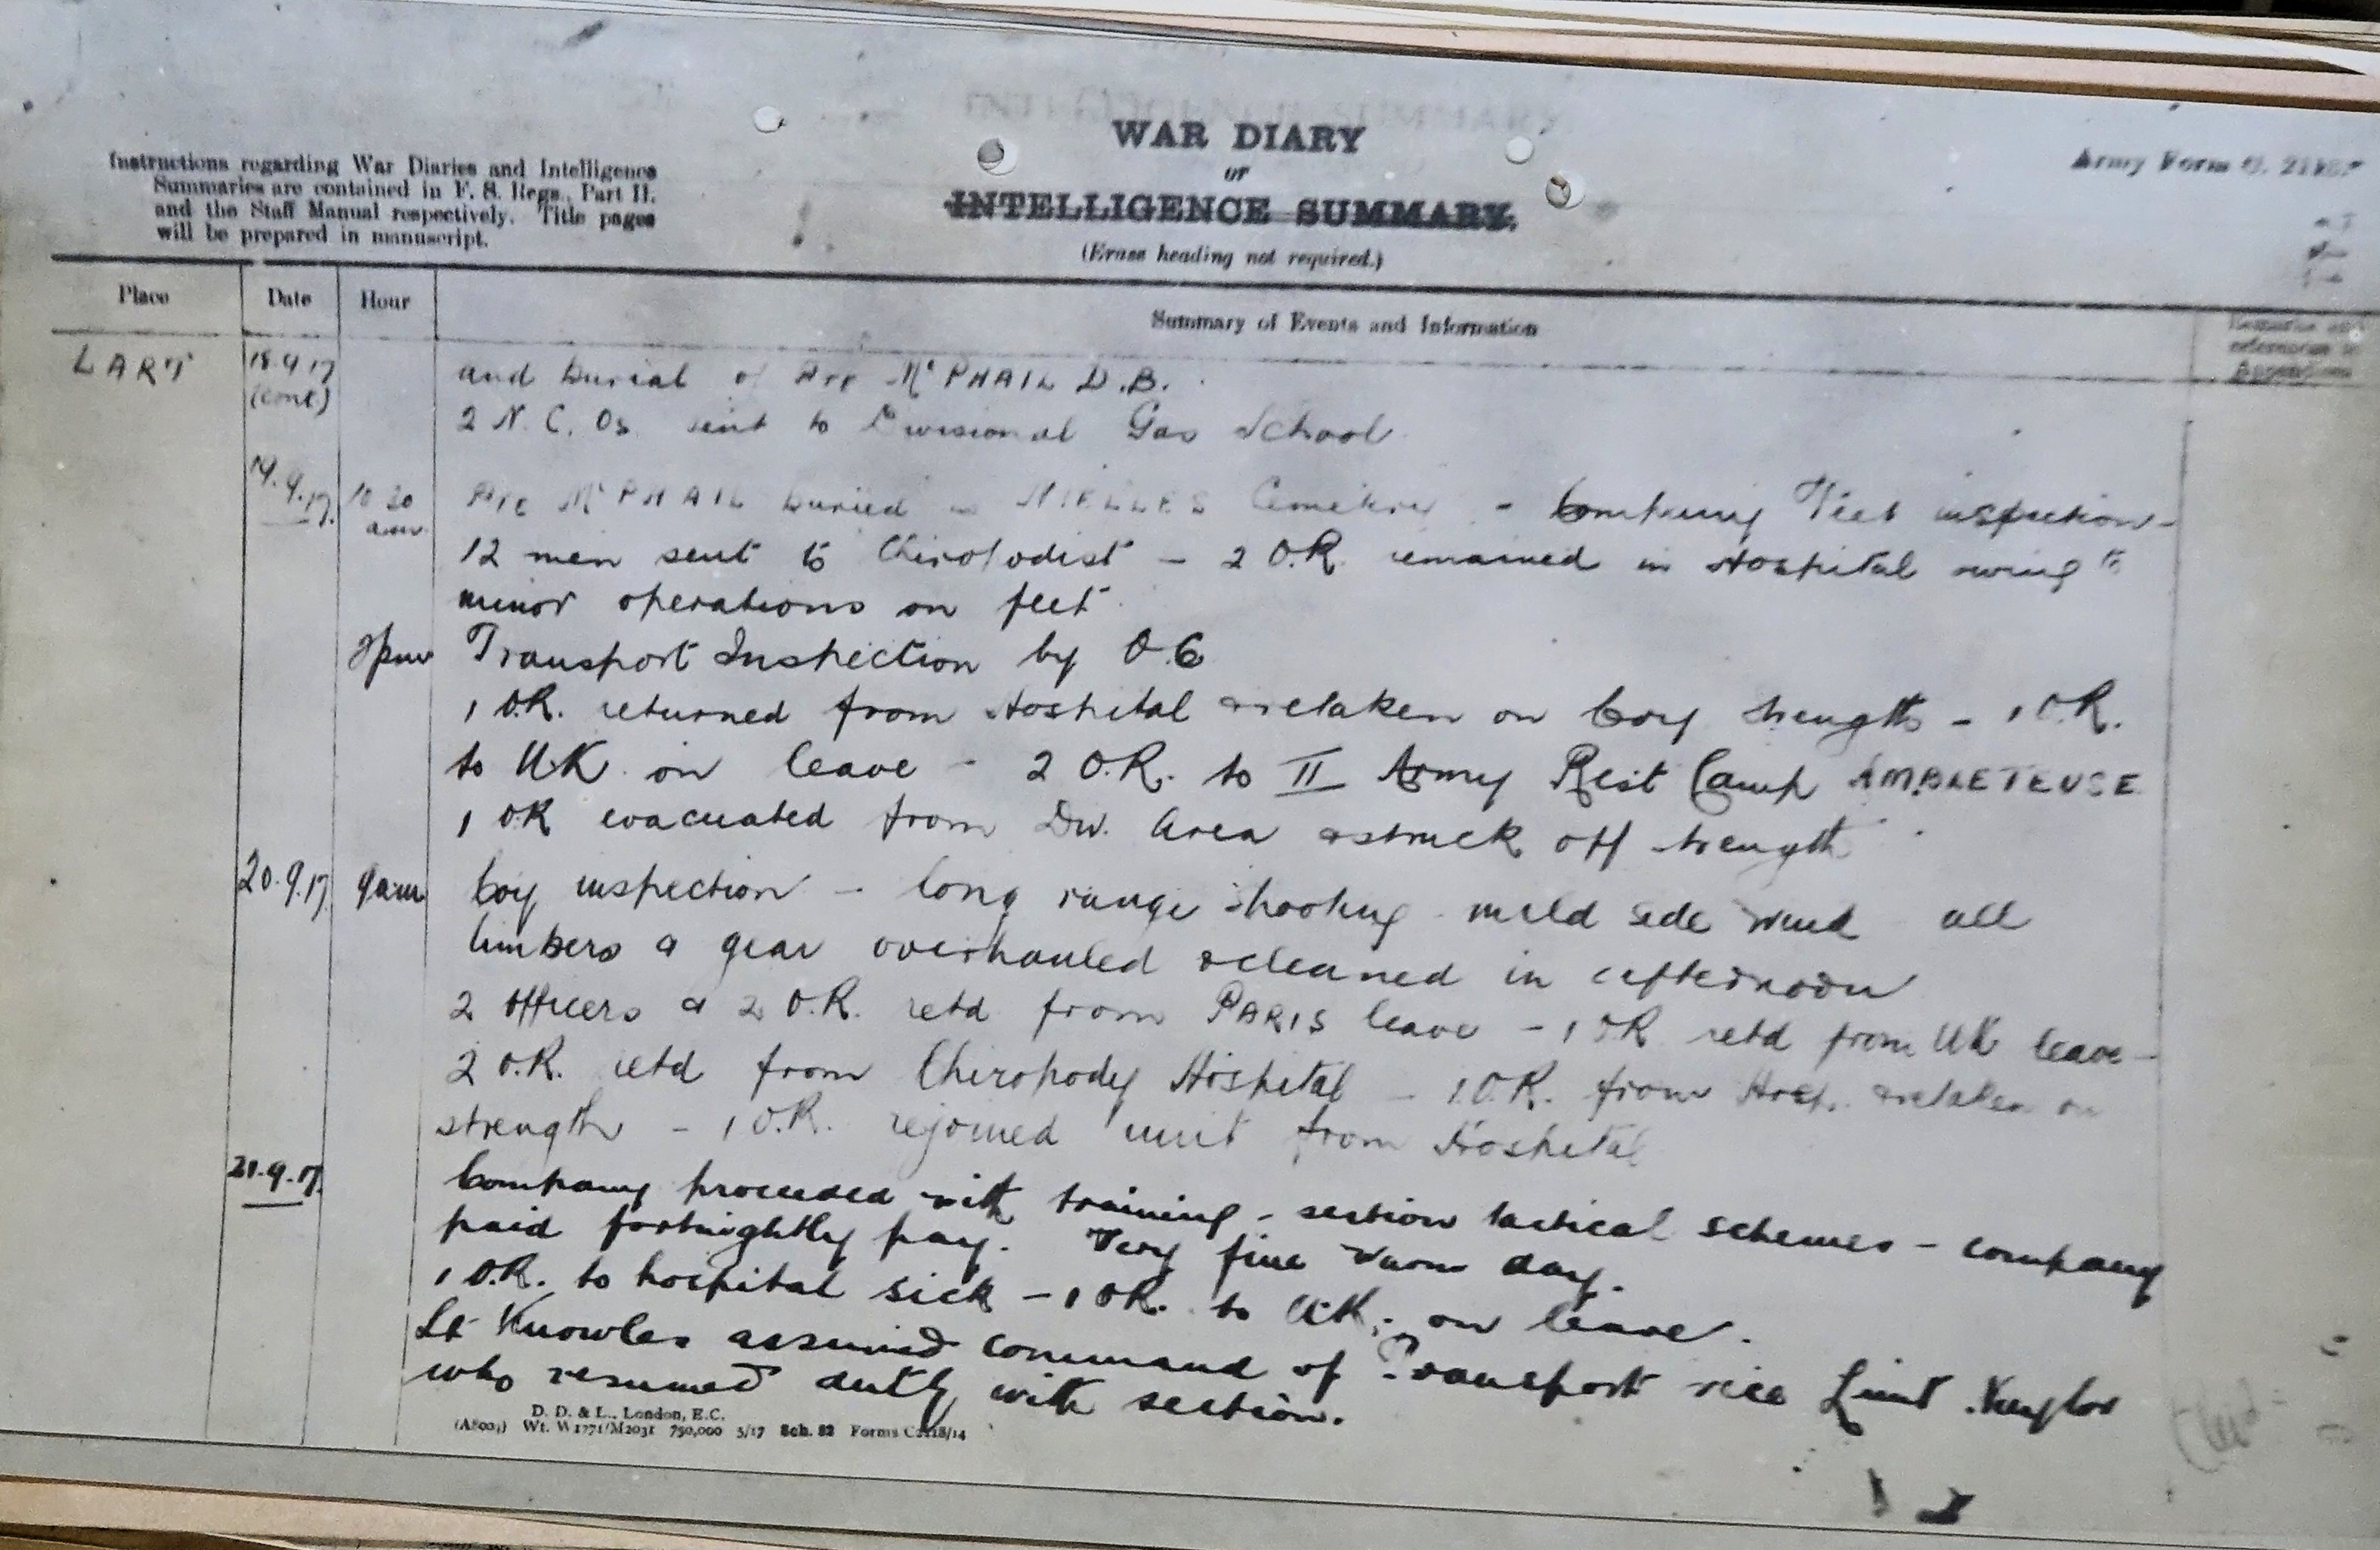 WAR DIARY
or
INTELLIGENCE SUMMARY.
(Erase heading not required.)
Army Form C.
Instructions regarding War Diaries and Intelligence
Summaries are contained in F. S. Regs., Part II.
and the Staff Manual respectively. Title pages
will be prepared in manuscript.
Place Date Hour Summary of Events and Information
LART 18.9.17 and burial of Pte McPHAIL D.B.
(cont) 2 N.C.Os. sent to Divisional Gas School
19.9.17. 10 30 Pte McPHAIL buried in NIELLES Cemetery - Company Feet inspection -
am. 12 men sent to Chiropodist - 2 O.R. remained in Hospital owing to
minor operations on feet.
2pm Transport Inspection by O.C
1 O.R. returned from Hospital & retaken on Coy strength - 1 O.R.
to U.K. on leave - 2 O.R. to II Army Rest Camp AMBLETEUSE
1 OR evacuated from Div. Area & struck off strength
20.9.17. 9am Coy inspection - long range shooting mild side wind all
limbers & gear overhauled & cleaned in afternoon
2 Officers & 2 O.R. retd from PARIS leave - 1 OR retd from UK leave -
2 O.R. retd from Chiropody Hospital - 1 O.R. from Hosp. & retaken on
strength - 1 O.R. rejoined unit from Hospital
21.9.17. Company proceeded with training - section tactical schemes - company
paid fortnightly pay. Very fine warm day.
1 O.R. to hospital sick - 1 OR. to U.K. on leave.
Lt Knowles assumed command of Transport vice Lieut. Naylor
who resumed duty with section.
D. D. & L., London, E.C.
(A8001) Wt. W1771/M2031 750,000 5/17 Sch. 82 Forms C2118/14